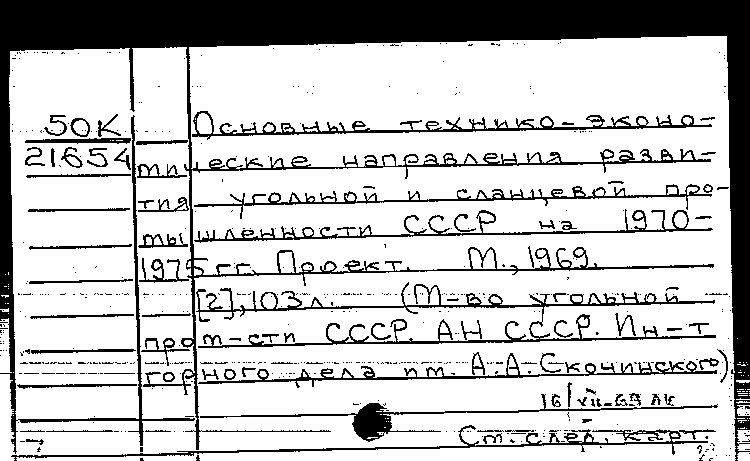 50К Основные технико-эконо-
21654 мические направления разви-
тия угольной и сланцевой про-
мышленности СССР на 1970-
1975 гг. Проект. М., 1969.
[2], 103 л. (М-во угольной
пром-сти СССР. АН СССР. Ин-т
горного дела им. А.А. Скочинского)
16/VII-69 ЛК
См. след. карт.